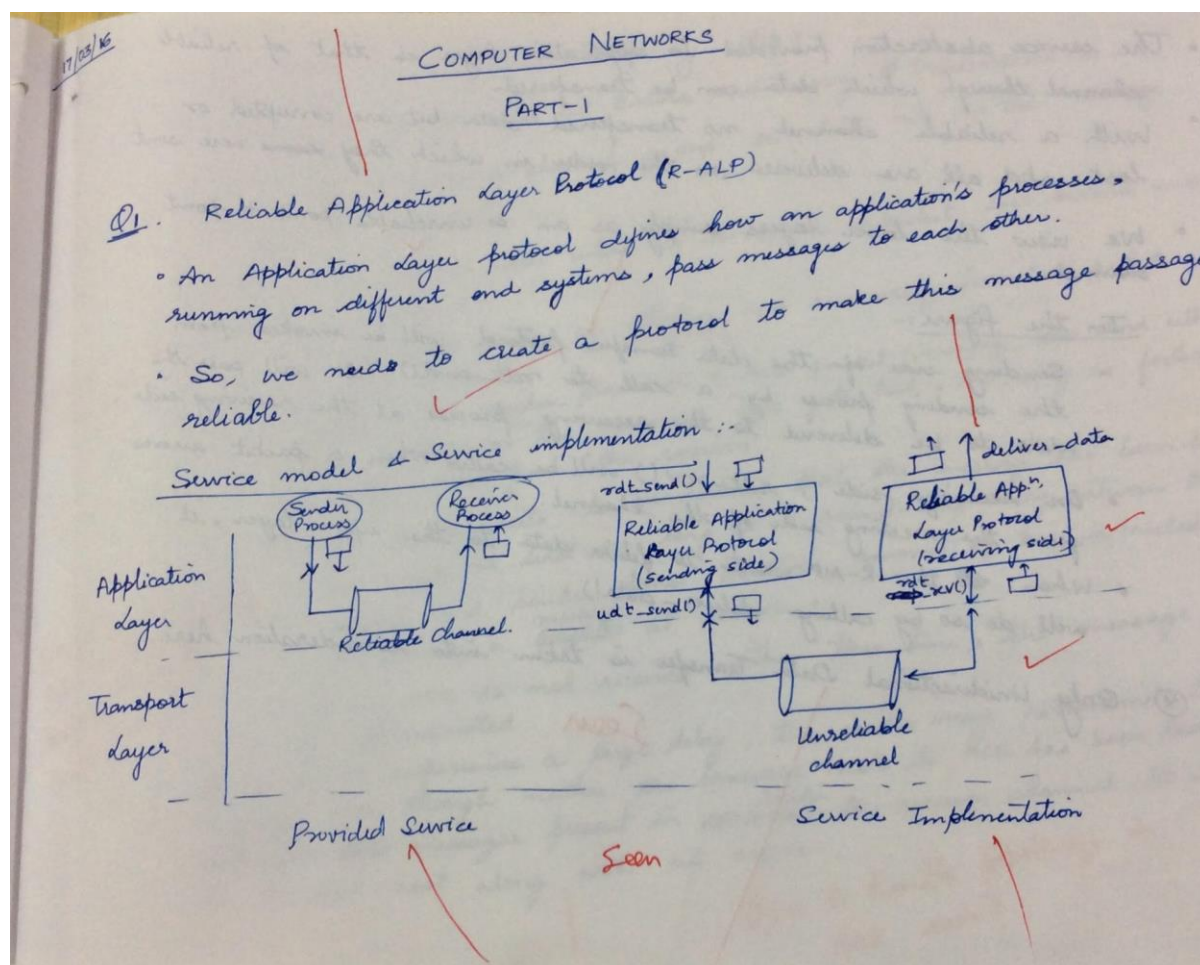 17/03/16
COMPUTER NETWORKS
PART-1
Q1. Reliable Application Layer Protocol (R-ALP)
• An Application Layer protocol defines how an application's processes,
running on different end systems, pass messages to each other.
• So, we needs to create a protocol to make this message passage
reliable.
Service model & Service implementation :-
Sender
Process
Receiver
Process
Reliable Channel.
Application
Layer
Transport
Layer
Provided Service
rdt_send()
Reliable Application
Layer Protocol
(sending side)
udt_send()
deliver_data
Reliable Appn.
Layer Protocol
(receiving side)
rdt_rcv()
Unreliable
channel
Service Implementation
Seen